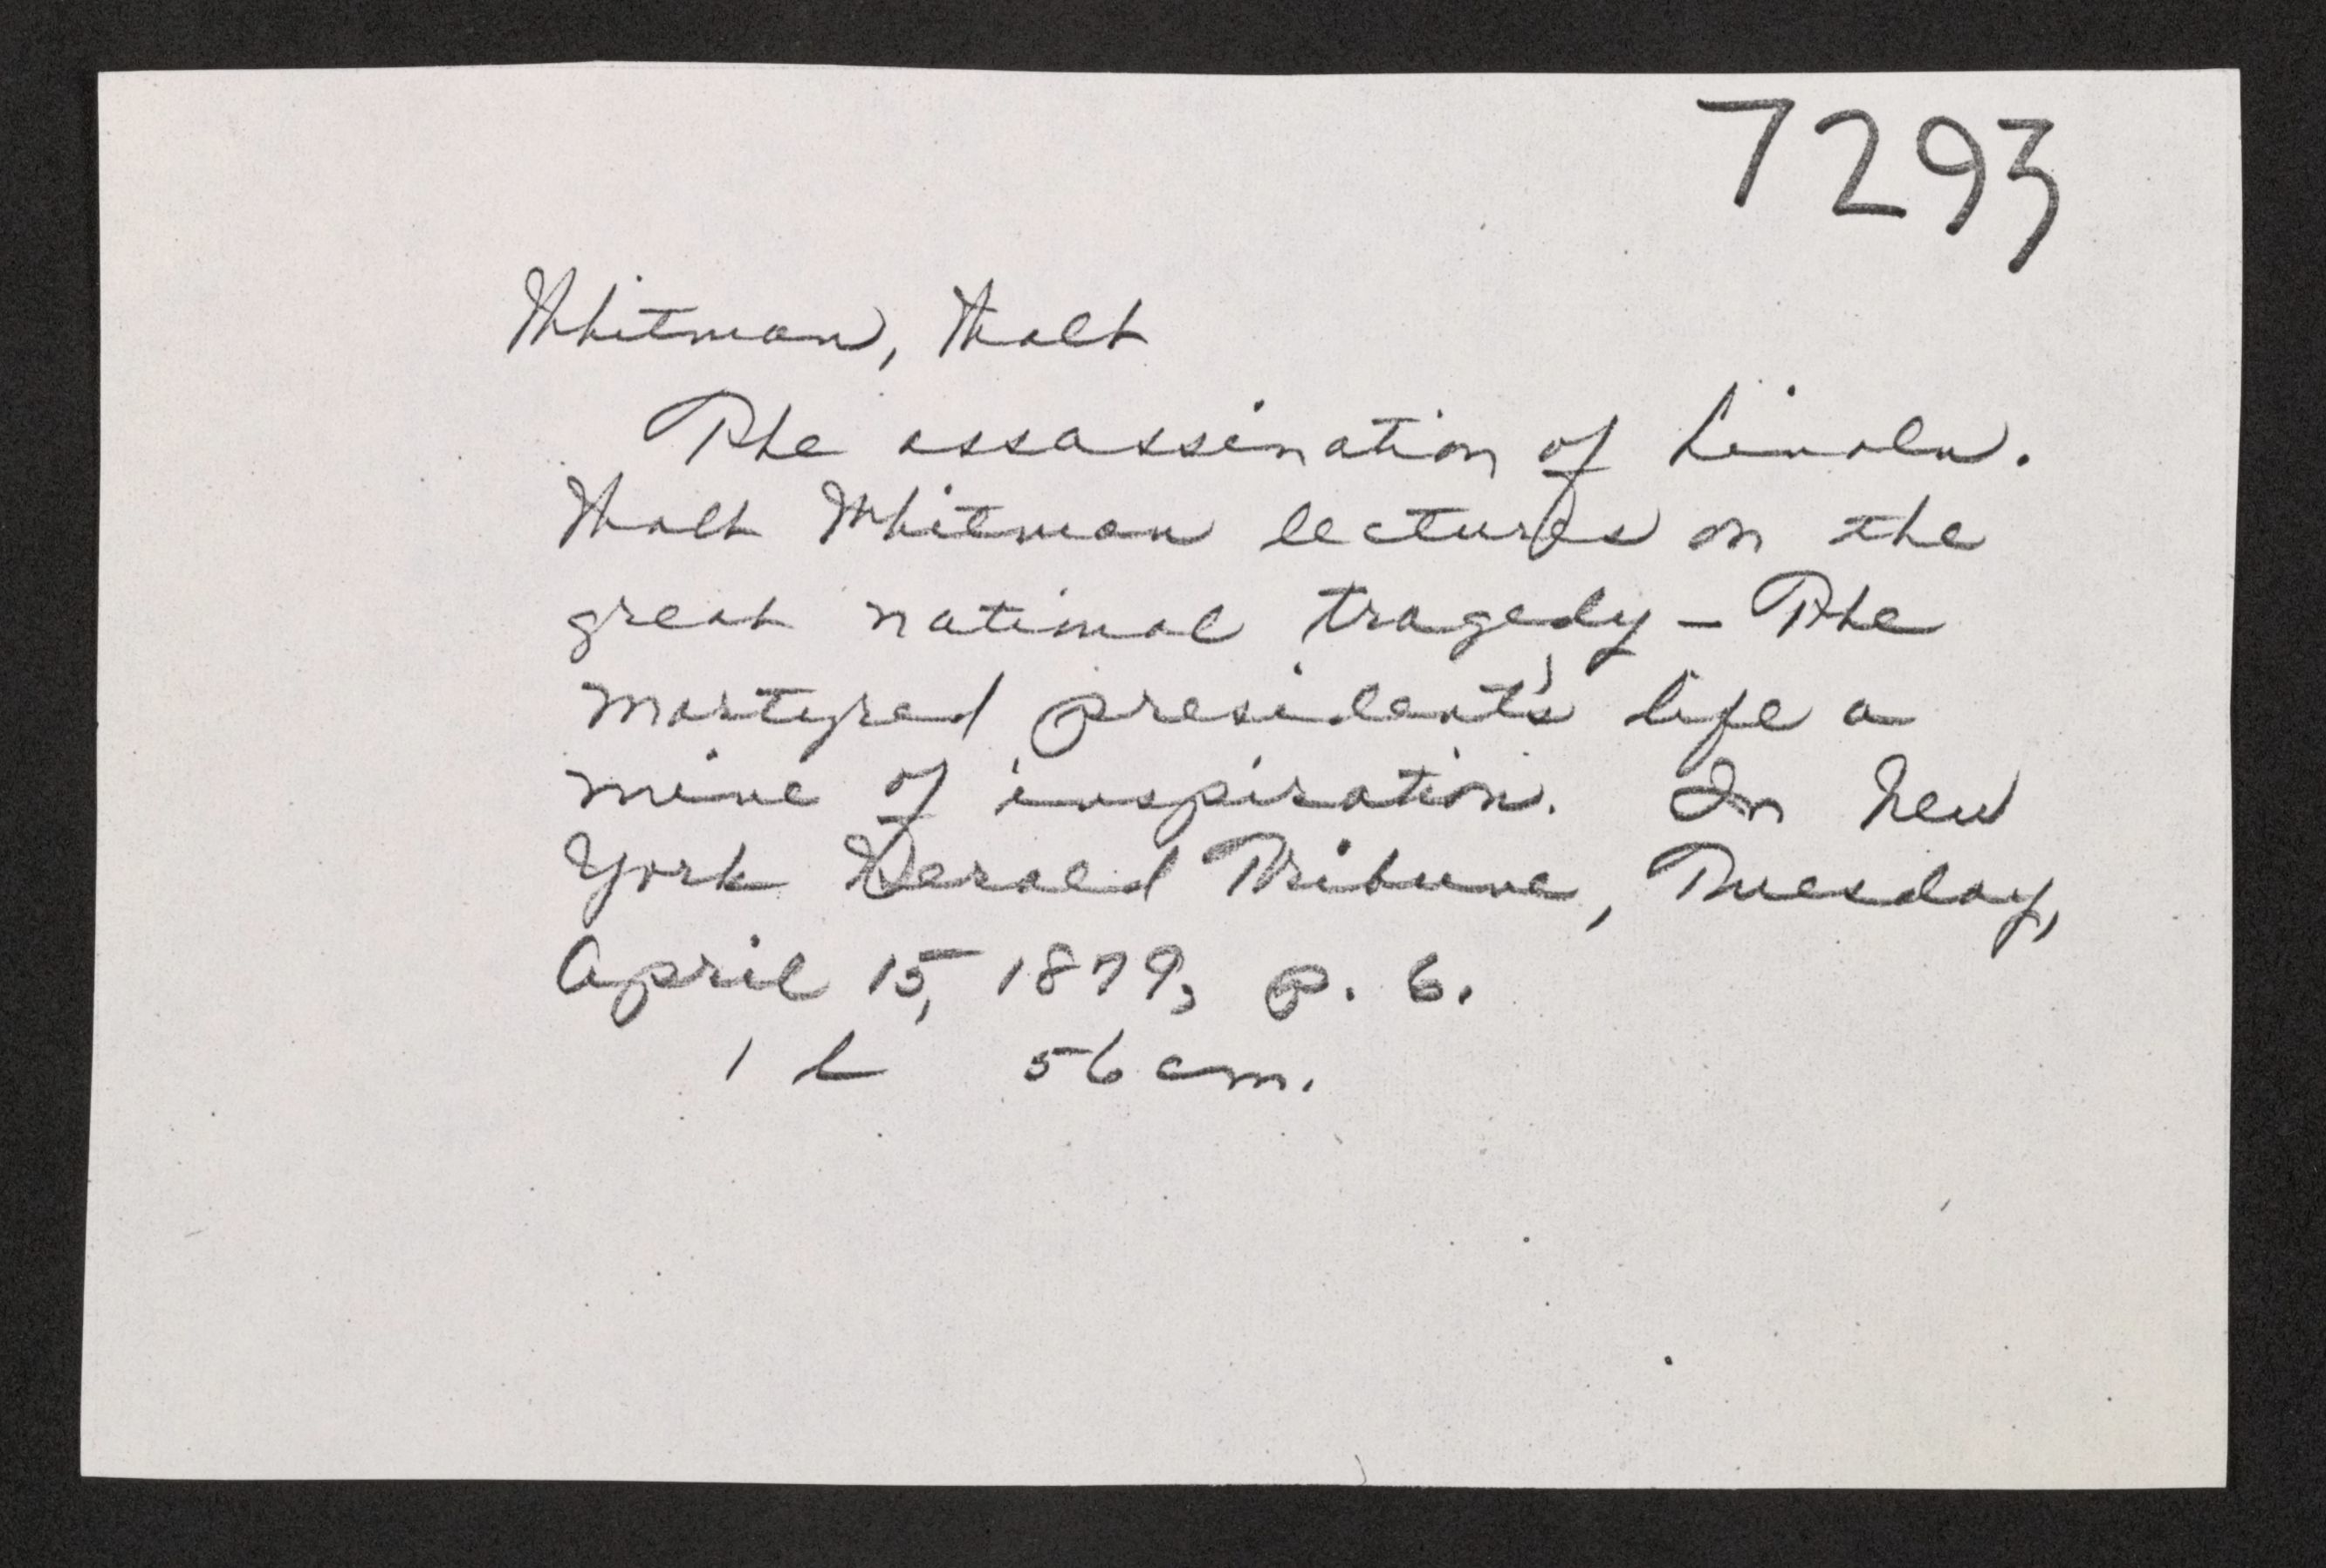 7293
Whitman, Walt
The assassination of Lincoln.
Walt Whitman lectures on the
great national tragedy - The
martyred president's life a
mine of inspiration. In New
York Herald Tribune, Tuesday,
April 15, 1879, p. 6.
1 l 56 cm.